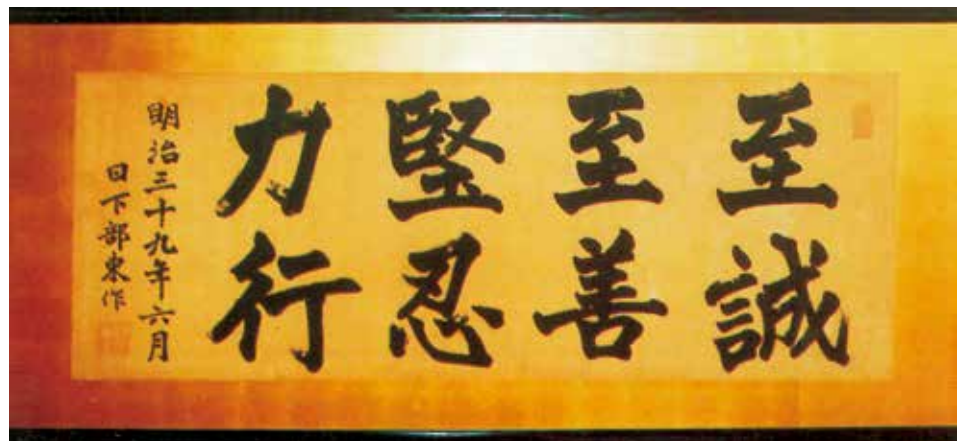 至誠
至善
堅忍
力行
明治三十九年六月
日下部東作